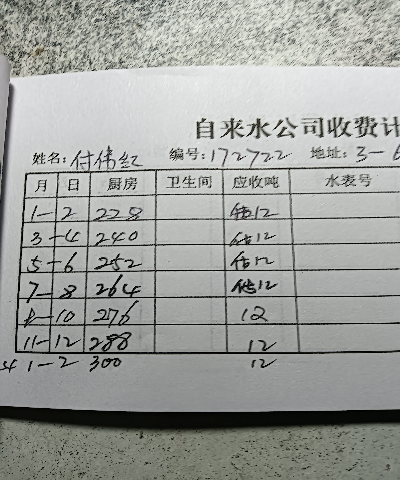 自来水公司收费计
姓名：付伟红 编号：172722 地址：3-6
月 日 厨房 卫生间 应收吨 水表号
1-2 228 估12
3-4 240 估12
5-6 252 估12
7-8 264 估12
8-10 276 12
11-12 288 12
4 1-2 300 12